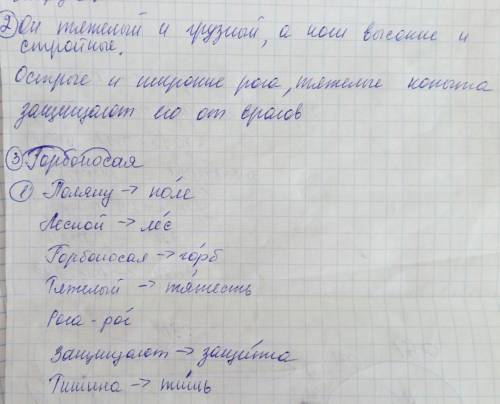 ② Он тяжелый и грузный, а ноги высокие и
стройные.
Острые и широкие рога, тяжелые копыта
защищают его от врагов
③ Горбоносая
① Поляну → по́ле
Лесной → ле́с
Горбоносая → го́рб
Тяжелый → тя́жесть
Рога - ро́г
Защищают → защи́та
Тишина → ти́шь